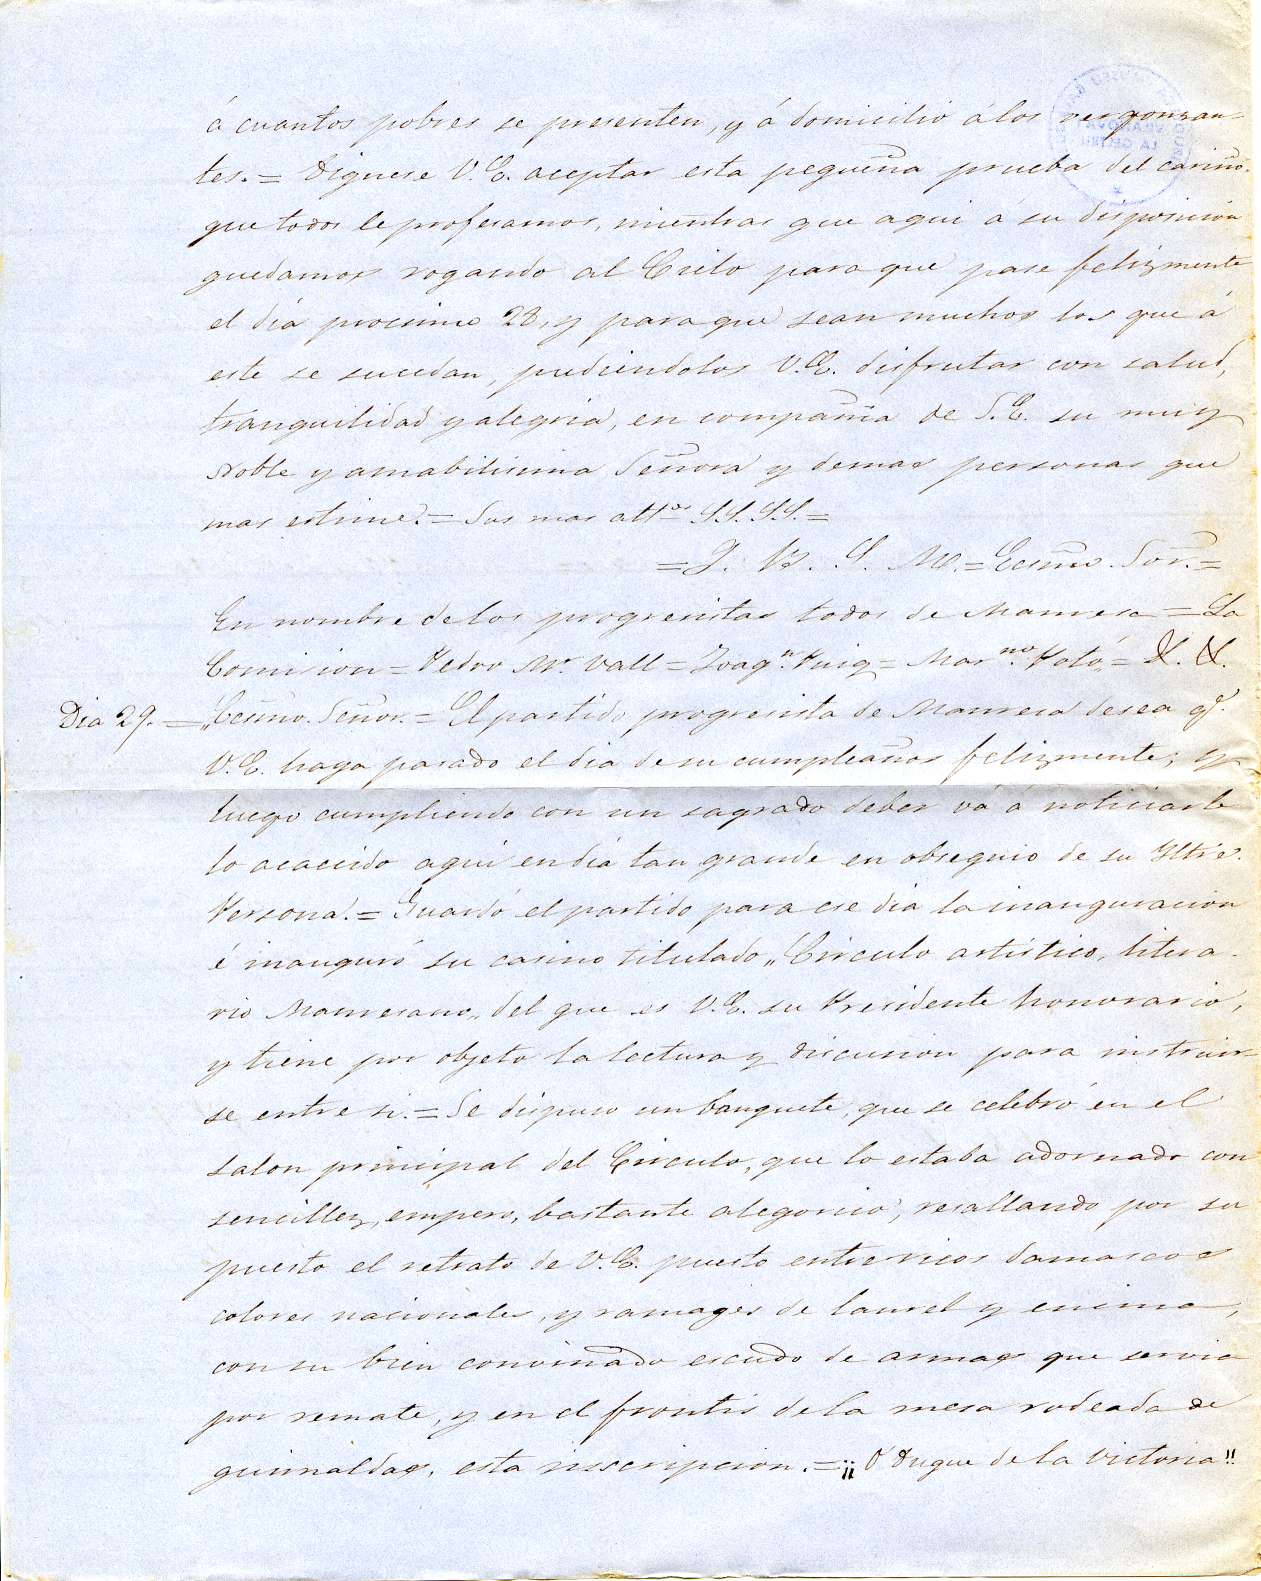 á cuantos pobres se presenten, y á domicilio á los vergonzan-
tes.= Dignese V.E. aceptar esta pequeña prueba del cariño
que todos le profesamos, mientras que aqui á su disposicion
quedamos rogando al Cielo para que pase felizmente
el dia procsimo 28, y para que sean muchos los que á
este se sucedan, pudiendolos V.E. disfrutar con salud,
tranquilidad y alegria, en compañia de S.E. su muy
noble y amabilisima Señora y demas personas que
mas estime.= Sus mas attos SS.SS.=
=Q. B. S. M.= Ecsmo. Sor.=
En nombre de los progresistas todos de Manresa = La
Comision = Pedro Mr. Vall = Joaqn. Puig = Marno. Potó = &. &.
Dia 29. = „Ecsmo. Señor.= El partido progresista de Manresa desea qe.
V.E. haya pasado el dia de su cumpleaños felizmente; y
luego cumpliendo con un sagrado deber vá á noticiarle
lo acaecido aqui en dia tan grande en obsequio de su Iltre.
Persona.= Guardó el partido para ese dia la inauguracion
é inauguró su casino titulado „Circulo artistico, litera-
rio Manresano„ del que es V.E. su Presidente honorario,
y tiene por objeto la lectura y discusion para instruir-
se entre si.= Se dispuso un banquete, que se celebró en el
salon principal del Circulo, que lo estaba adornado con
sencillez, empero, bastante alegorico, resaltando por su
puesto el retrato de V.E. puesto entre ricos damascos
colores nacionales, y ramages de laurel y encima,
con su bien convinado escudo de armas que servia
por remate, y en el frontis de la mesa rodeada de
guirnaldas, esta inscripcion.= ¡¡ O Duque de la Victoria !!